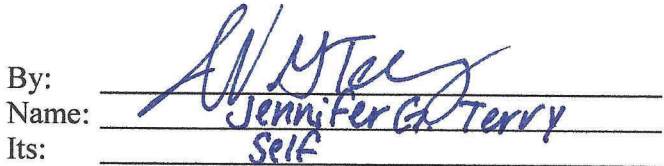 By:
Name: Jennifer G. Terry
Its: Self